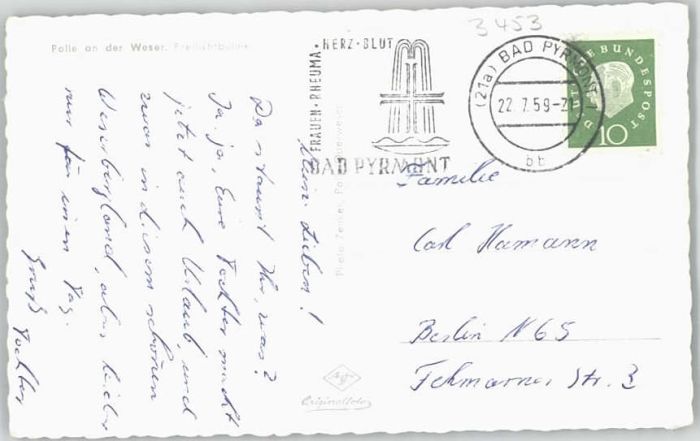 3453
Polle an der Weser. Freilichtbühne
HERZ · BLUT
FRAUEN · RHEUMA ·
BAD PYRMONT
(21a) BAD PYRMONT
22.7.59-
bt
DEUTSCHE BUNDESPOST
10
Meine Lieben!
Da staunt Ihr, was?
Ja, ja, Eure Tochter macht
jetzt auch Urlaub, und
zwar in diesem schönen
Weserbergland, aber leider
nur für einen Tag.
Gruß Tochter
Familie
Carl Hamann
Berlin N 65
Fehmarner Str. 3
Agfa
Originalfoto